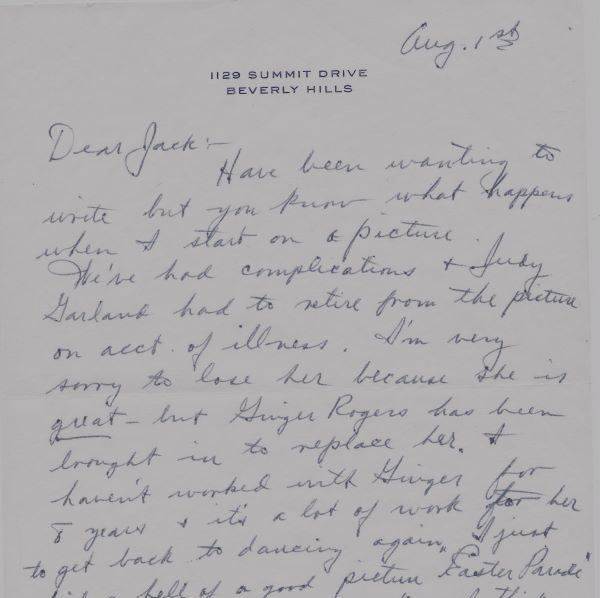 Aug. 1st
1129 SUMMIT DRIVE
BEVERLY HILLS
Dear Jack:—
Have been wanting to
write but you know what happens
when I start on a picture.
We've had complications & Judy
Garland had to retire from the picture
on acct. of illness. I'm very
sorry to lose her because she is
great – but Ginger Rogers has been
brought in to replace her. I
haven't worked with Ginger for
8 years & it's a lot of work for her
to get back to dancing again. I just
hell of a good picture "Easter Parade"